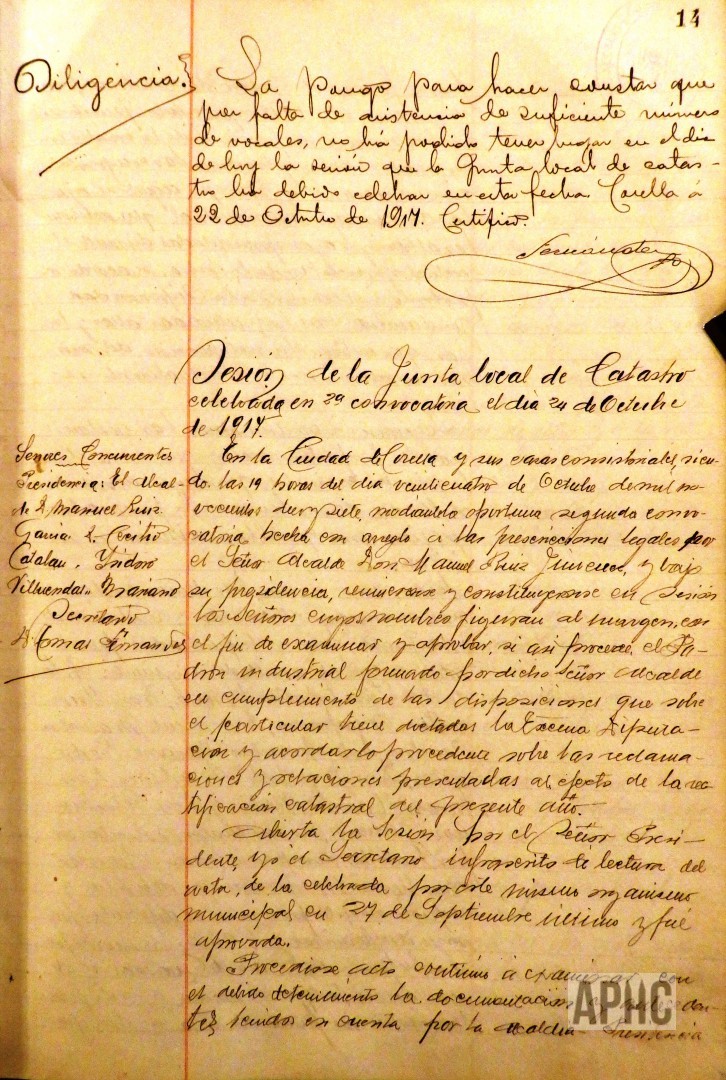 14
Diligencia.
La pongo para hacer constar que
por falta de asistencia de suficiente número
de vocales, no ha podido tener lugar en el dia
de hoy la sesión que la Junta local de catas-
tro ha debido celebrar en esta fecha Corella á
22 de Octubre de 1917. Certifico.
Fernández
Sesión de la Junta local de Catastro
celebrada en 2ª convocatoria el dia 24 de Octubre
de 1917.
Señores Concurrentes
Presidencia: El Alcal-
de D. Manuel Ruiz
Garcia D.
Catalan, Ysidro
Villuendas, Mariano
Secretario
D. Tomas Fernandez
En la Ciudad de Corella y sus casas consistoriales, sien-
do las 19 horas del dia veinticuatro de Octubre de mil no-
vecientos diecisiete, mediante oportuna segunda convo-
catoria hecha con arreglo a las prescripciones legales por
el Señor Alcalde Don Manuel Ruiz Jimenez, y bajo
su presidencia, reunieronse y constituyeronse en Sesión
los Señores cuyos nombres figuran al margen, con
el fin de examinar y aprobar, si asi procede, el Pa-
drón industrial formado por dicho Señor Alcalde
en cumplimiento de las disposiciones que sobre
el particular tiene dictadas la Excma Diputa-
ción y acordar lo procedente sobre las reclama-
ciones y relaciones presentadas al efecto de la rec-
tificación catastral del presente año.
Abierta la Sesión por el Señor Presi-
dente, yo el Secretario infrascrito di lectura del
acta, de la celebrada por este mismo organismo
municipal en 27 de Septiembre último y fué
aprovada.
Procediose acto continuo á examinar con
el debido detenimiento la documentación
tes tenidos en cuenta por la Alcaldia Presidencia
APHC